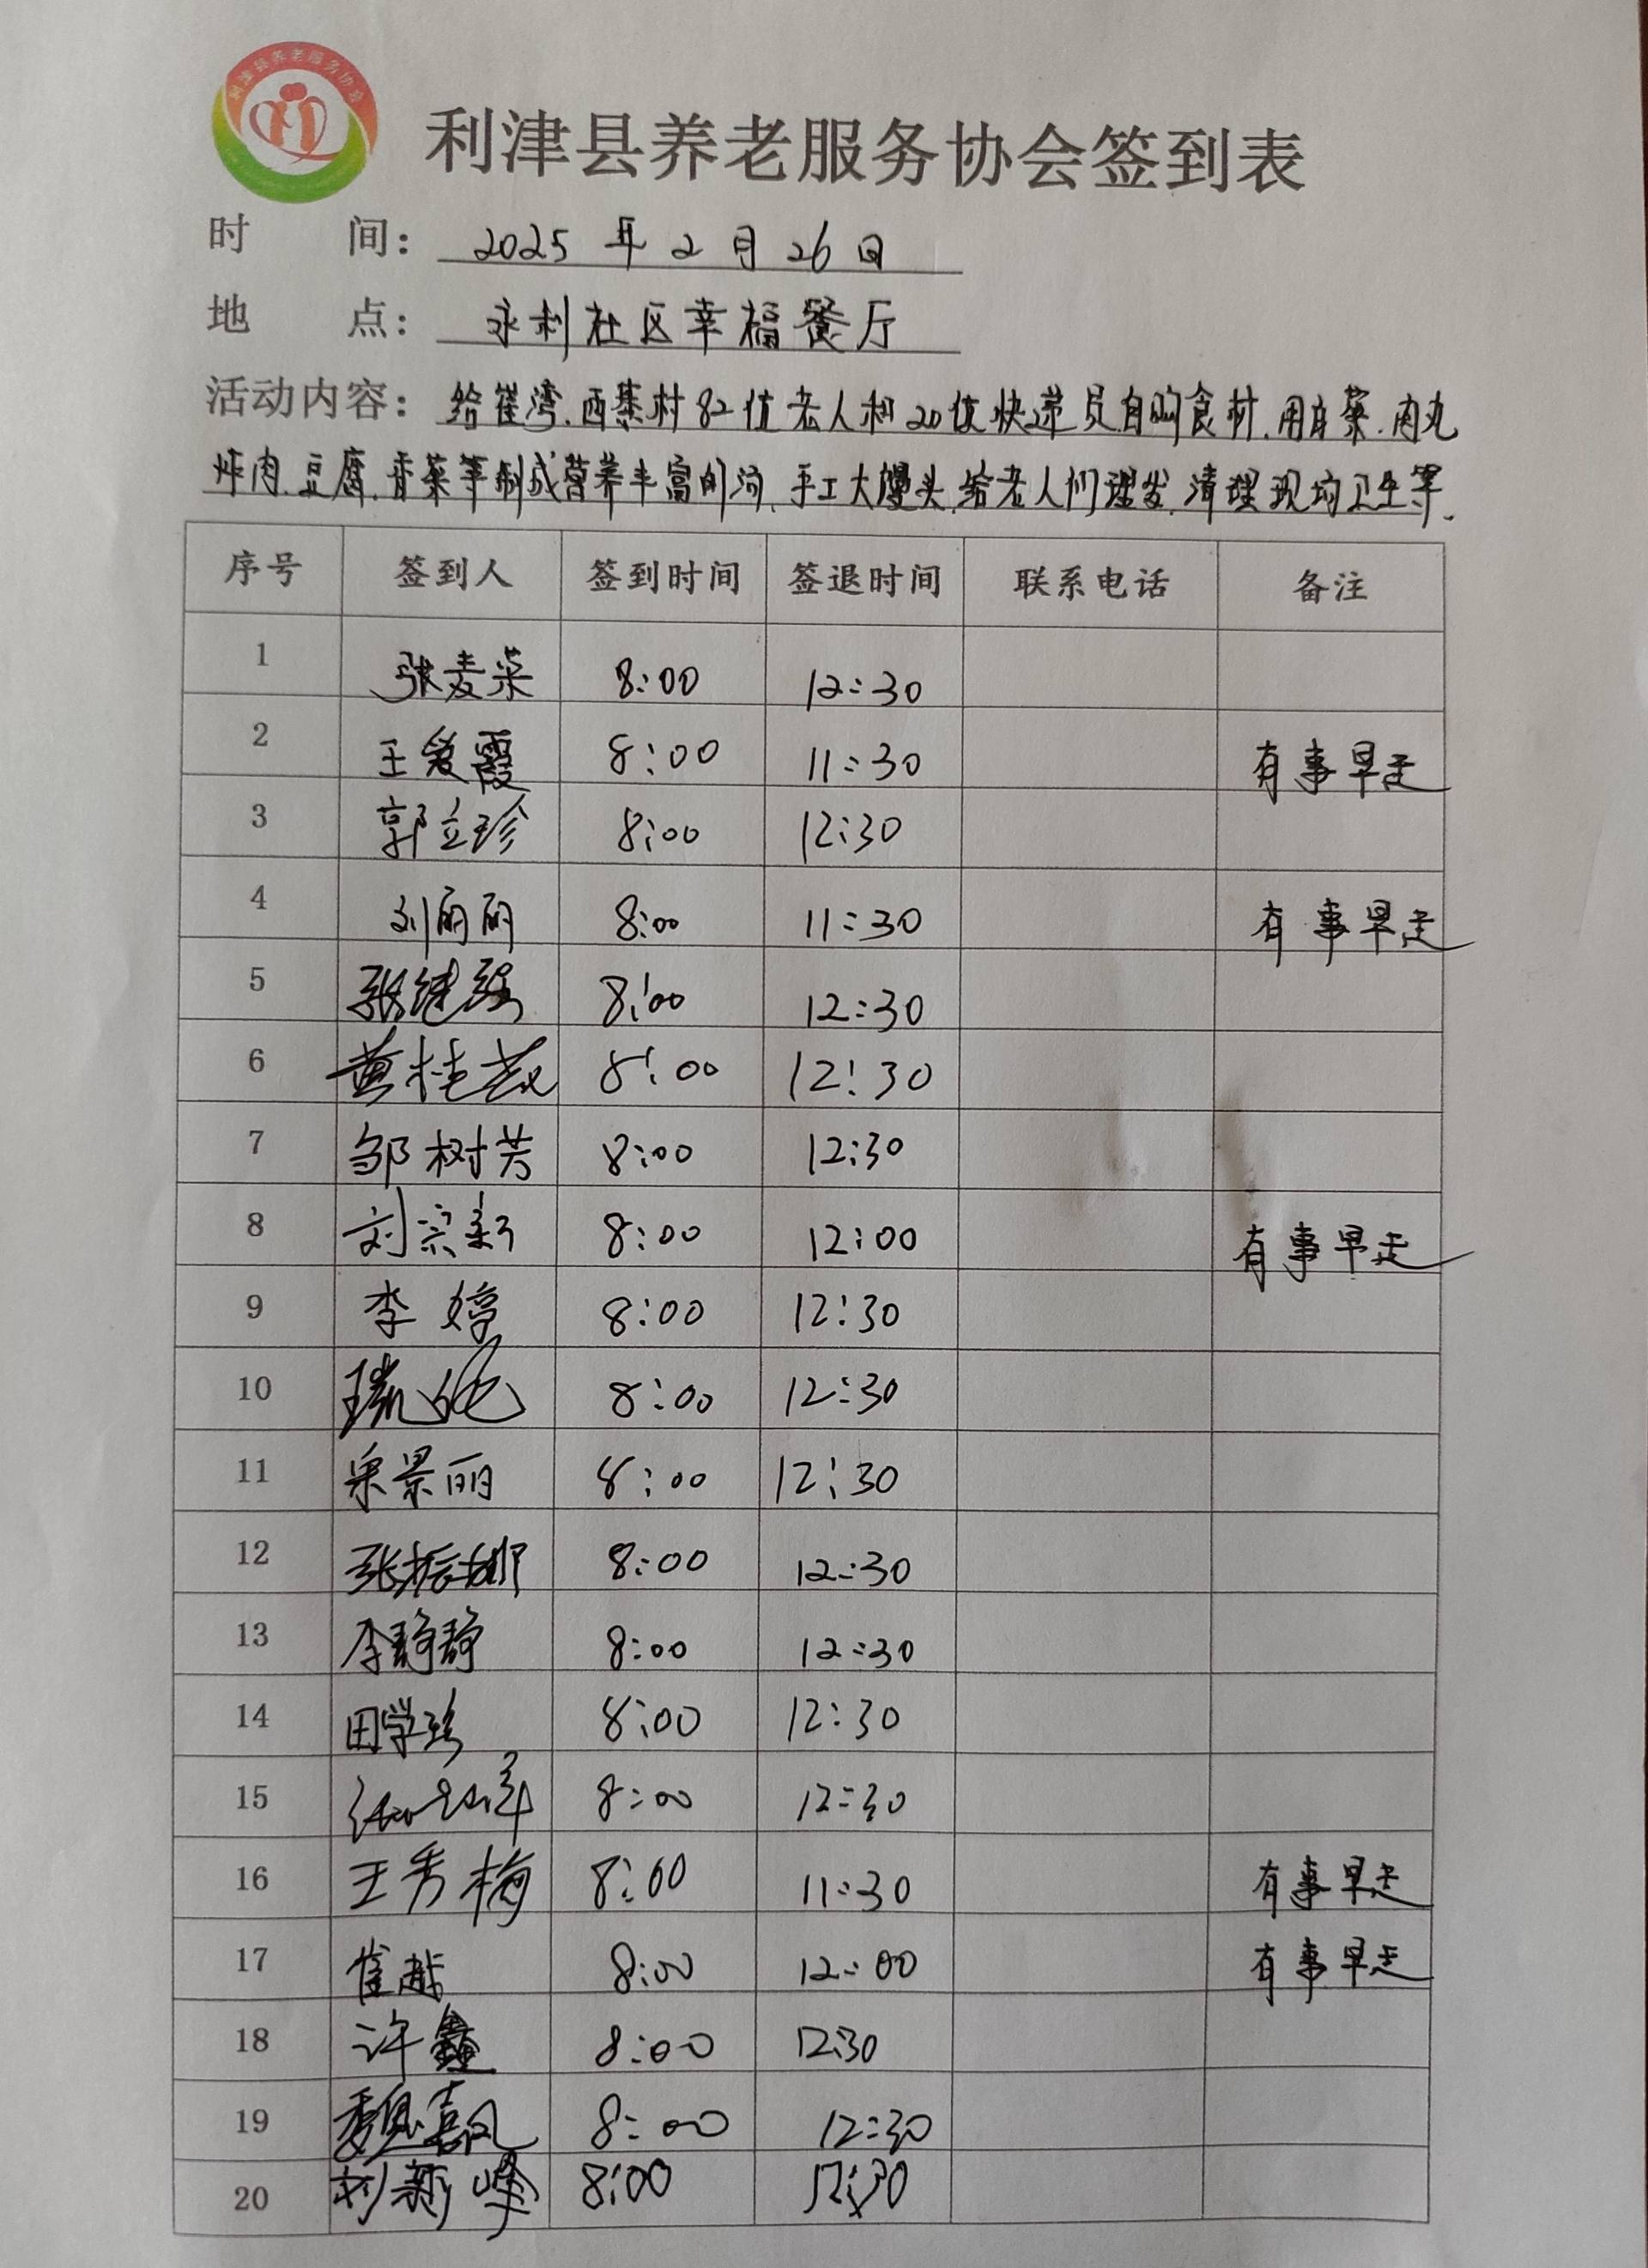 利津县养老服务协会
利津县养老服务协会签到表
时 间： 2025 年 2 月 26 日
地 点： 永利社区幸福餐厅
活动内容： 给崔湾、西寨村82位老人和20位快递员自购食材、用白菜、肉丸
炸肉、豆腐、香菜等制成营养丰富的汤、手工大馒头、给老人们理发、清理现场卫生等.
序号 签到人 签到时间 签退时间 联系电话 备注
1 张麦菜 8:00 12:30
2 王爱霞 8:00 11:30 有事早走
3 郭立珍 8:00 12:30
4 刘丽丽 8:00 11:30 有事早走
5 张继强 8:00 12:30
6 黄桂 8:00 12:30
7 邹树芳 8:00 12:30
8 刘宗新 8:00 12:00 有事早走
9 李婷 8:00 12:30
10 8:00 12:30
11 景丽 8:00 12:30
12 张振娜 8:00 12:30
13 李静静 8:00 12:30
14 田学珍 8:00 12:30
15 8:00 12:30
16 王秀梅 8:00 11:30 有事早走
17 崔越 8:00 12:00 有事早走
18 许鑫 8:00 12:30
19 魏喜凤 8:00 12:30
20 刘新峰 8:00 12:30